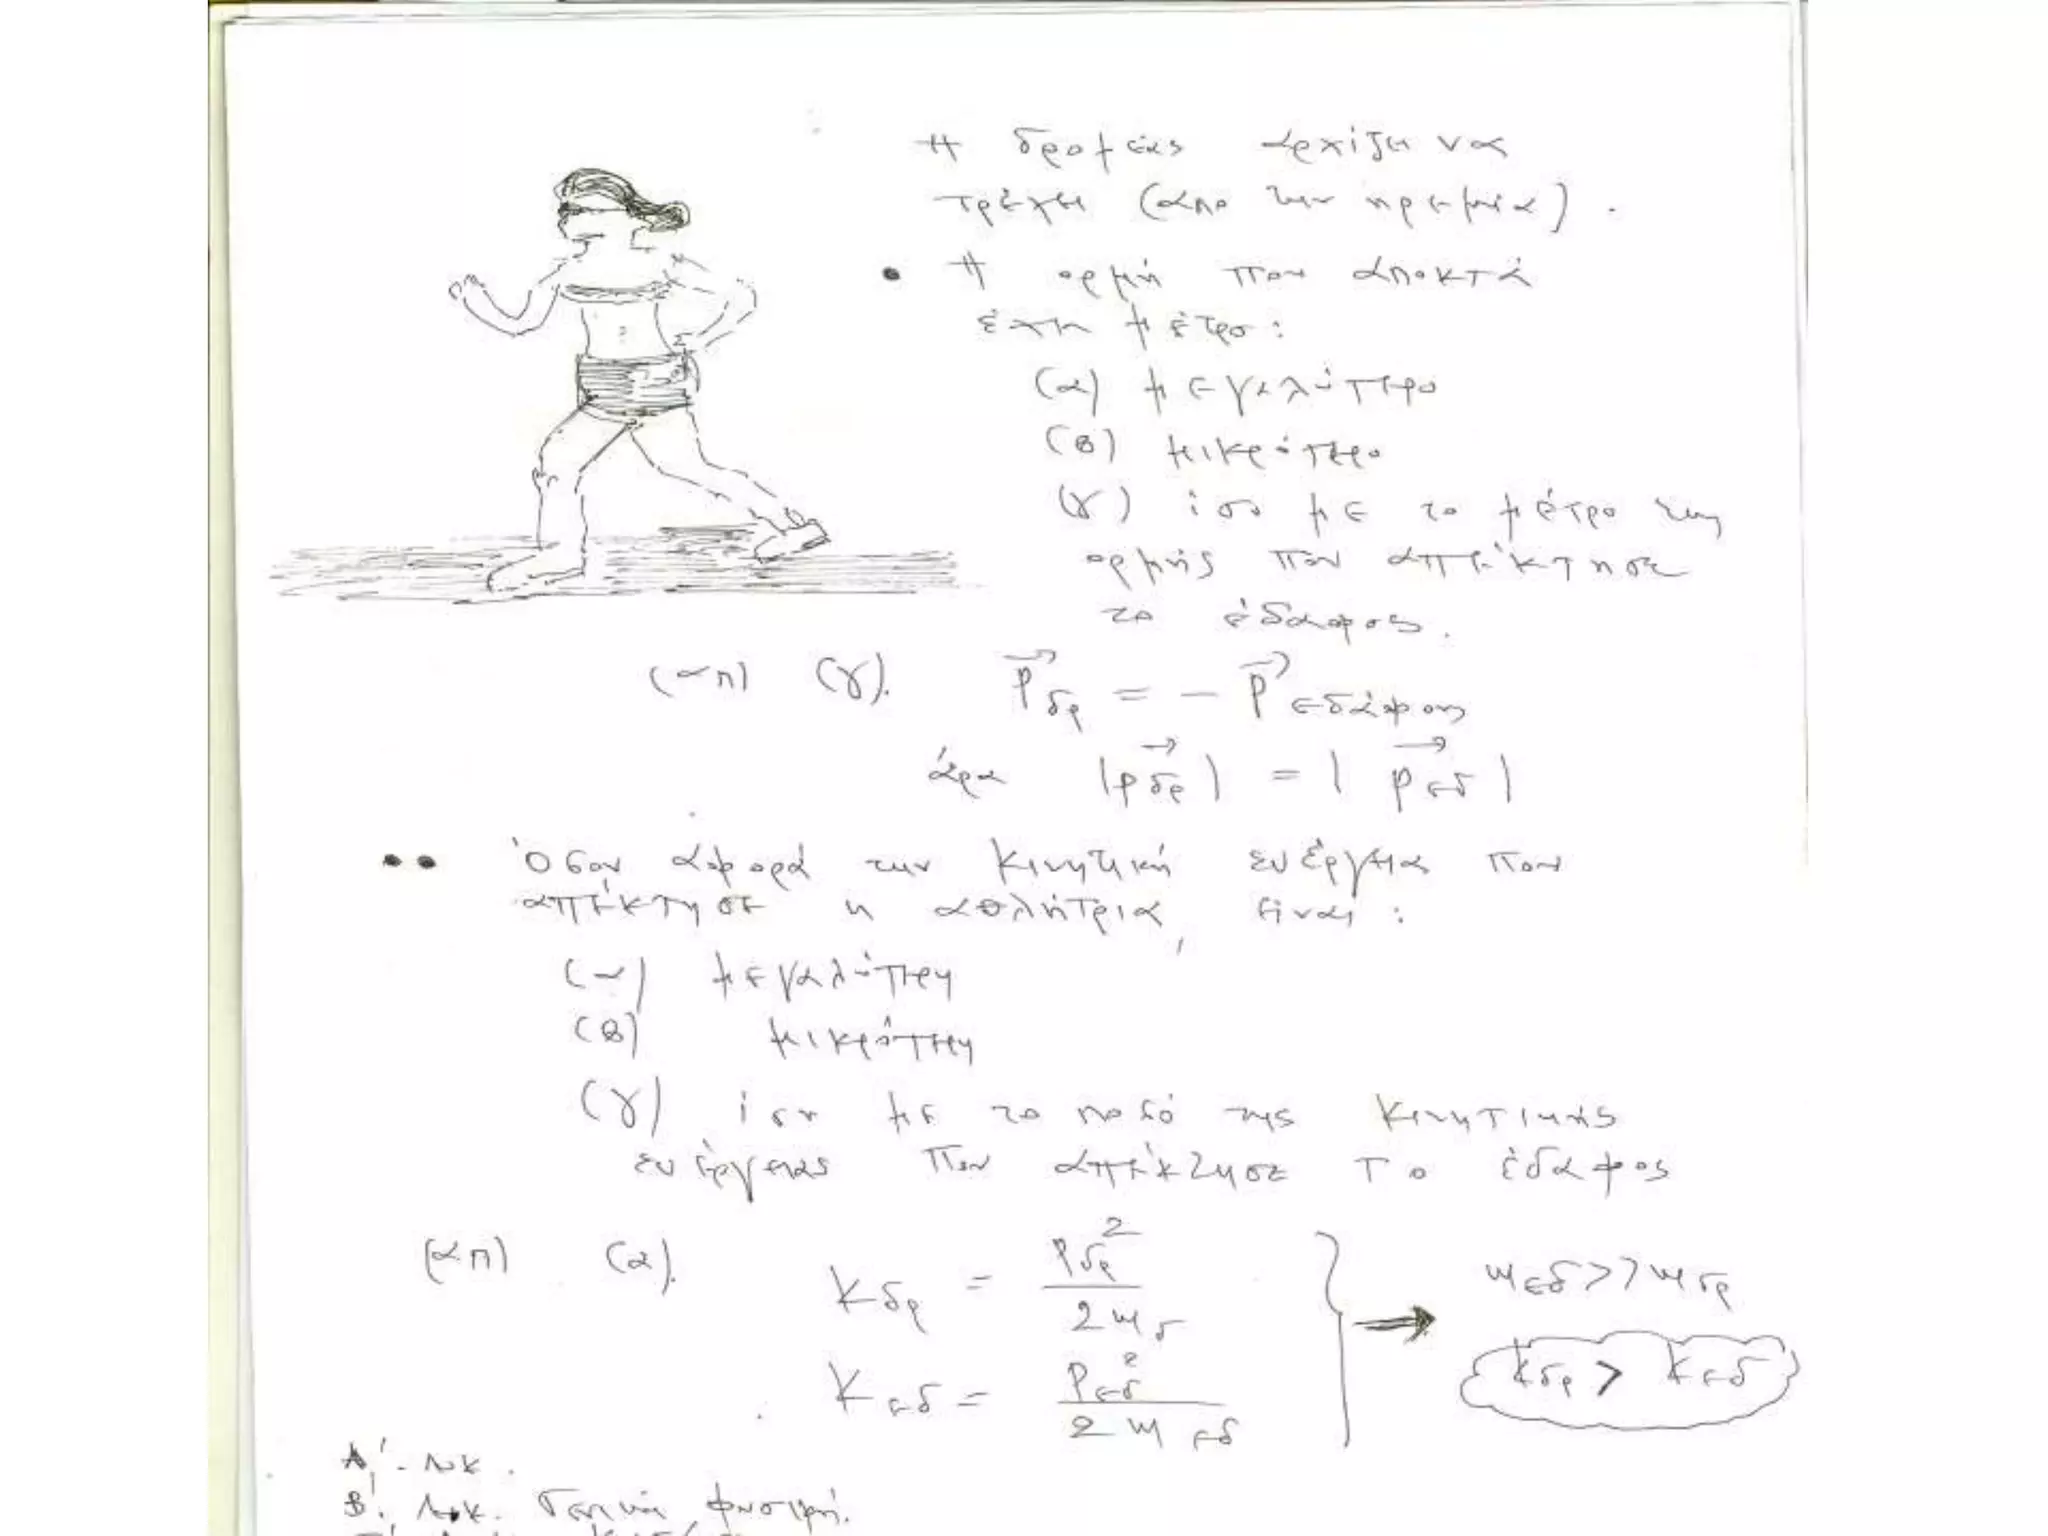 Η δρομέας αρχίζει να
τρέχει (από την ηρεμία).
• Η ορμή που αποκτά
έχει μέτρο:
(α) μεγαλύτερο
(β) μικρότερο
(γ) ίσο με το μέτρο της
ορμής που απέκτησε
το έδαφος.
(απ) (γ). p⃗δρ = - p⃗εδάφους
άρα |p⃗δρ| = |p⃗εδ|
•• Όσον αφορά την κινητική ενέργεια που
απέκτησε η αθλήτρια, είναι:
(α) μεγαλύτερη
(β) μικρότερη
(γ) ίση με το ποσό της κινητικής
ενέργειας που απέκτησε το έδαφος
(απ) (α). Kδρ = pδρ² / 2mδ
mεδ >> mδρ
Kεδ = pεδ² / 2mεδ
Kδρ > Kεδ
Α' - Λυκ.
Β'. Λυκ. Γενική